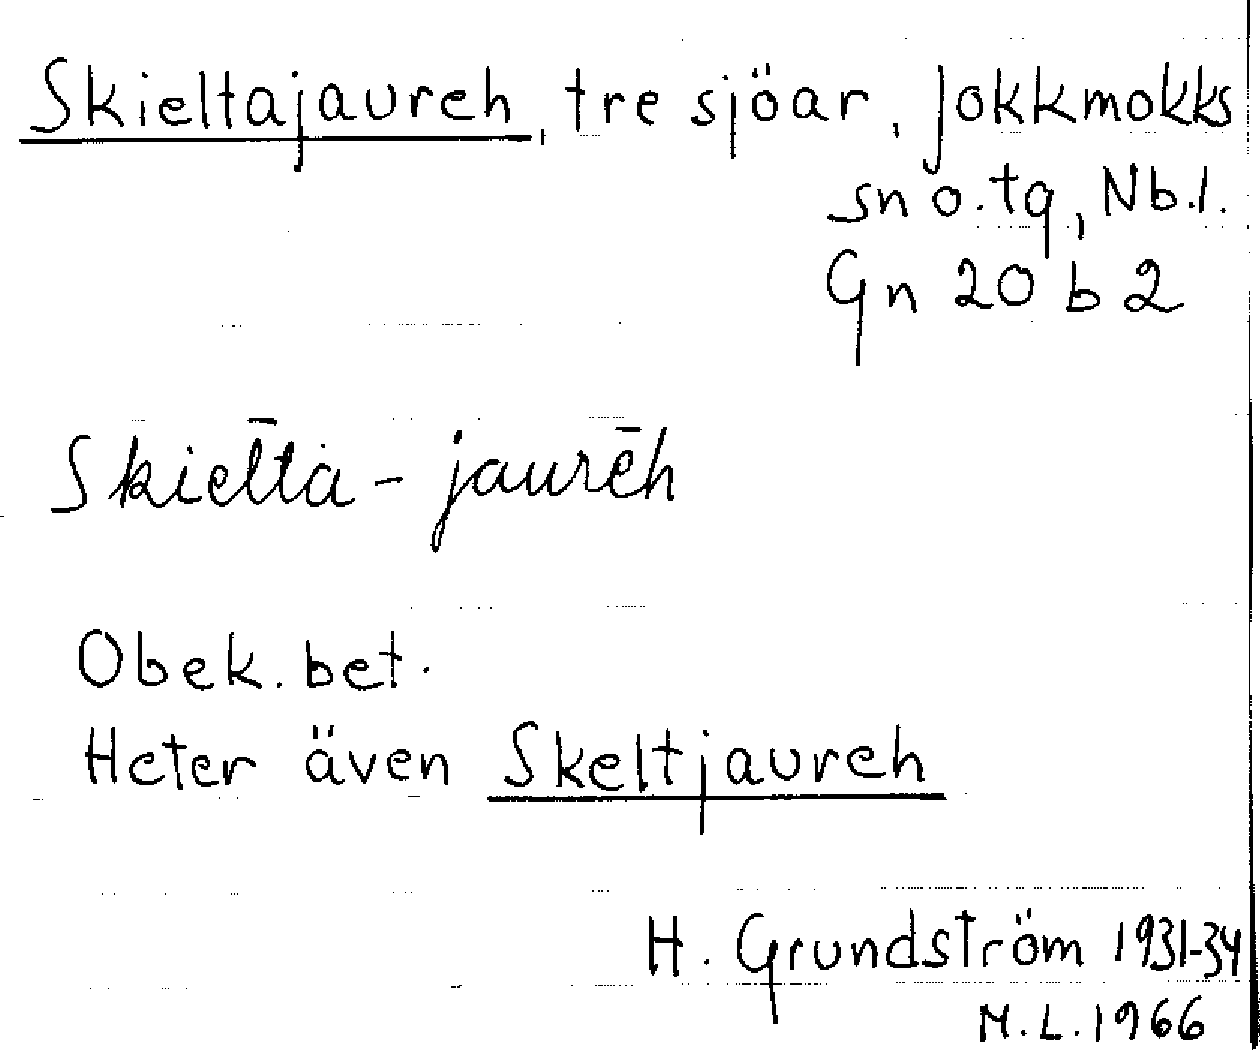 Skieltajaureh, tre sjöar, Jokkmokks
sn o. tg, Nb.l.
Gn 20 b 2
Skiel̄tà-jaurēh
Obek. bet.
Heter även Skeltjaureh
H. Grundström 1931-34
M.L. 1966